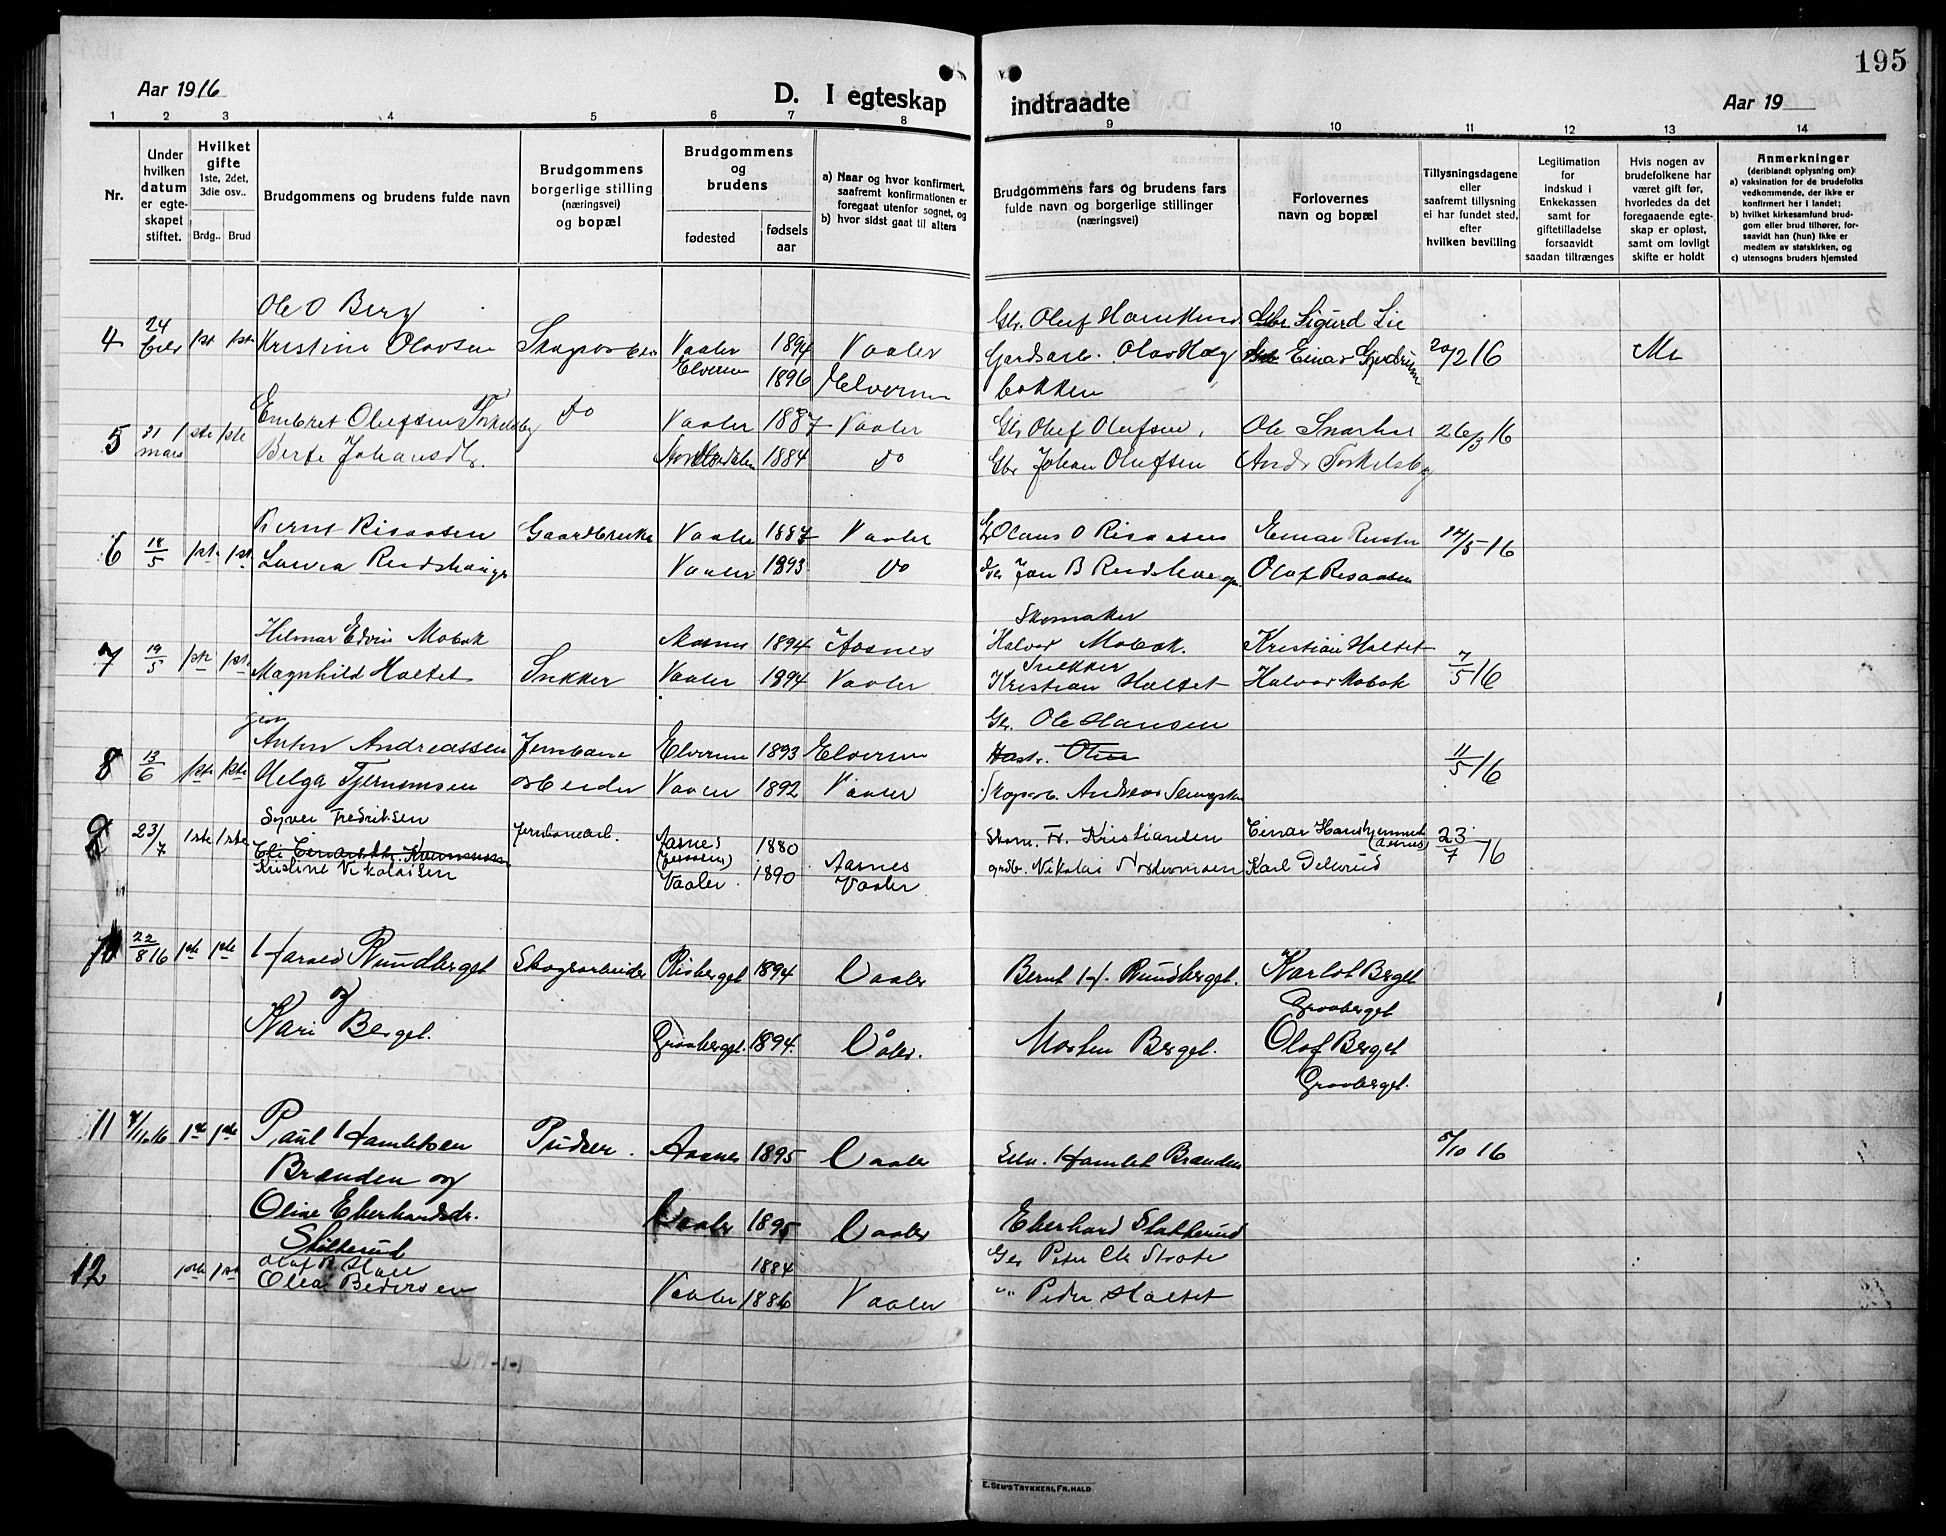 195
Aar 1916 D. I egteskap indtraadte Aar 19
1 2 3 4 5 6 7 8 9 10 11 12 13 14
Nr.
Under hvilken datum er egte- skapet stiftet.
Hvilket gifte 1ste, 2det, 3die osv.. Brdg.. Brud
Brudgommens og brudens fulde navn
Brudgommens borgerlige stilling (næringsvei) og bopæl
Brudgommens og brudens fødested fødsels aar
a) Naar og hvor konfirmert, saafremt konfirmationen er foregaat utenfor sognet, og b) hvor sidst gaat til alters
Brudgommens fars og brudens fars fulde navn og borgerlige stillinger (næringsvei)
Forlovernes navn og bopæl
Tillysningsdagene eller saafremt tillysning ei har fundet sted, efter hvilken bevilling
Legitimation for indskud i Enkekassen samt for giftetilladelse forsaavidt saadan tiltrænges
Hvis nogen av brudefolkene har været gift før, hvorledes da det foregaaende egte- skap er opløst, samt om lovligt skifte er holdt
Anmerkninger (deriblandt oplysning om): a) vaksination for de brudefolks vedkommende, der ikke er konfirmert her i landet; b) hvilket kirkesamfund brud- gom eller brud tilhører, for- saavidt han (hun) ikke er medlem av statskirken, og c) utensogns bruders hjemsted
Ole O Berg Gbr. Oluf Sigurd Lie
4 24 febr 1st 1st Kristine Olavsen Vaaler 1894 Vaaler Gardsarb. Olav Einar Gjedrum 20/2 16
Elverum 1896 Elverum bakken
Embret Olufsen Torkelsby do Vaaler 1887 Vaaler Gbr Oluf Olufsen Ole 26/3 16
5 31 mars 1ste 1ste Berte Johansdtr. 1884 do Gbr Johan Olufsen Andr Torkelsby
Bernt Risaasen Gaardbruker Vaaler 1887 Vaaler Olaus O Risaasen Einar 14/5 16
6 18/5 1ste 1st Vaaler 1893 do Jan B Olaf Risaasen
Skomaker
Hilmar Edvin Mobæk Aasnes 1894 Aasnes Halvor Mobæk. Kristian Holtet
7 19/5 1ste 1ste Magnhild Holtet Snekker Vaaler 1894 Vaaler Snekker Kristian Holtet Halvor Mobæk 7/5 16
Gbr. Ole Hansen
Anton Andreassen Jernbane Elverum 1893 Elverum
8 13/6 1ste 1ste Helga Tjernemsen arbeider Vaaler 1892 Vaaler Andreas 11/5 16
Syver Fredriksen Jernbanearb. Aasnes 1880 Skom. Fr. Kristiansen Einar
9 23/7 1ste 1ste Kristine Nikolaisen Vaaler 1890 Aasnes Vaaler grdb. Nikolai Karl 23/7 16
10 22/8 16 1ste 1ste Harald Rundberget Skogsarbeider Risberget 1894 Vaaler Bernt H. Rundberget. Karlot Berget
og Graaberget
Kari Berget. Graaberget. 1894. Våler. Morten Berget. Olaf Berget
Graaberget.
11 4/11 16 1ste 1ste Paul Hamletsen Pudser. Aasnes 1895 Vaaler Selv. Hamlet Brænden 5/10 16
Brænden og
Oline Eberhardsdr. Vaaler 1895 Vaaler Eberhard
12 1ste 1ste Olaf P. 1884 Gbr Peter Chr
Olea Pedersen Vaaler 1886 Vaaler " Peder Holtet
E. SEM'S TRYKKERI, FR.HALD